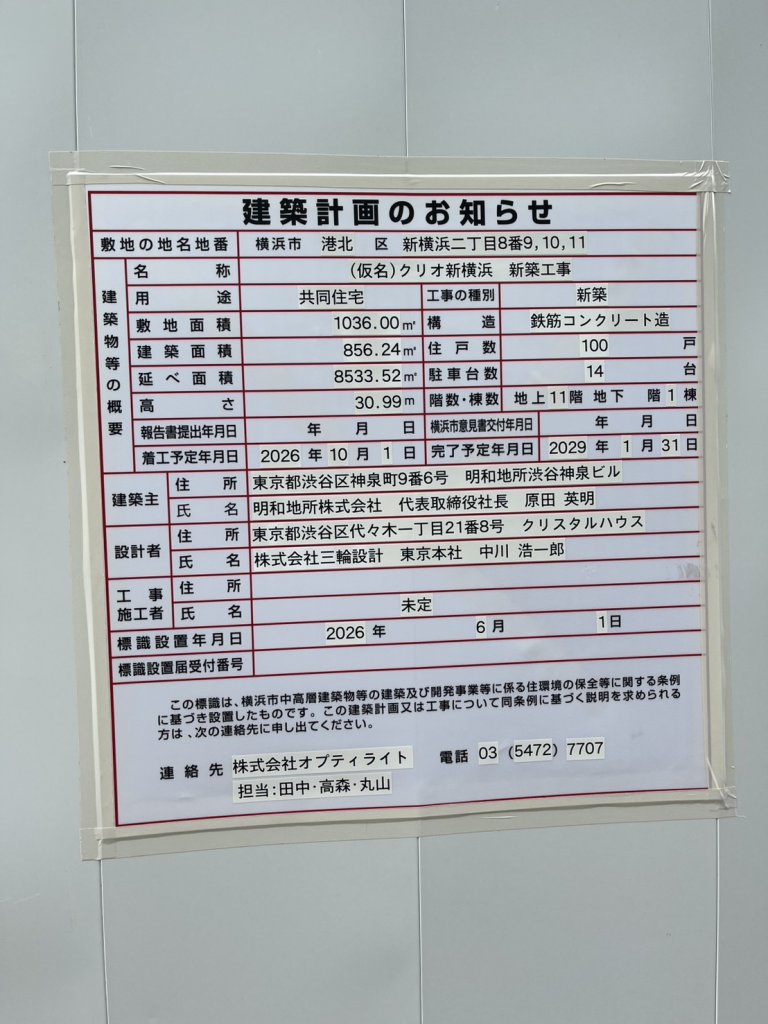 建築計画のお知らせ
敷地の地名地番 横浜市 港北 区 新横浜二丁目8番9,10,11
建築物等の概要
名称 (仮名)クリオ新横浜 新築工事
用途 共同住宅 工事の種別 新築
敷地面積 1036.00㎡ 構造 鉄筋コンクリート造
建築面積 856.24㎡ 住戸数 100 戸
延べ面積 8533.52㎡ 駐車台数 14 台
高さ 30.99m 階数・棟数 地上11階 地下 階 1 棟
報告書提出年月日 年 月 日 横浜市意見書交付年月日 年 月 日
着工予定年月日 2026 年 10 月 1 日 完了予定年月日 2029 年 1 月 31 日
建築主 住所 東京都渋谷区神泉町9番6号 明和地所渋谷神泉ビル
氏名 明和地所株式会社 代表取締役社長 原田 英明
設計者 住所 東京都渋谷区代々木一丁目21番8号 クリスタルハウス
氏名 株式会社三輪設計 東京本社 中川 浩一郎
工事施工者 住所
氏名 未定
標識設置年月日 2026 年 6 月 1 日
標識設置届受付番号
この標識は、横浜市中高層建築物等の建築及び開発事業等に係る住環境の保全等に関する条例
に基づき設置したものです。この建築計画又は工事について同条例に基づく説明を求められる
方は、次の連絡先に申し出てください。
連絡先 株式会社オプティライト 電話 03 (5472) 7707
担当:田中・高森・丸山